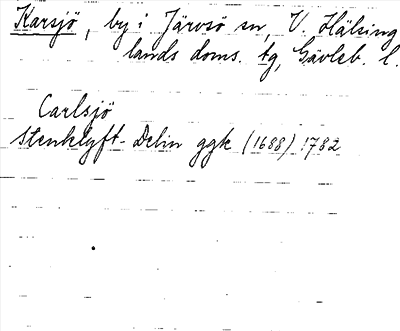 Karsjö, by i Järvsö sn, V. Hälsing
lands doms. tg, Gävleb. l.
Carlsjö
Stenklyft- Delin ggk (1688) 1782